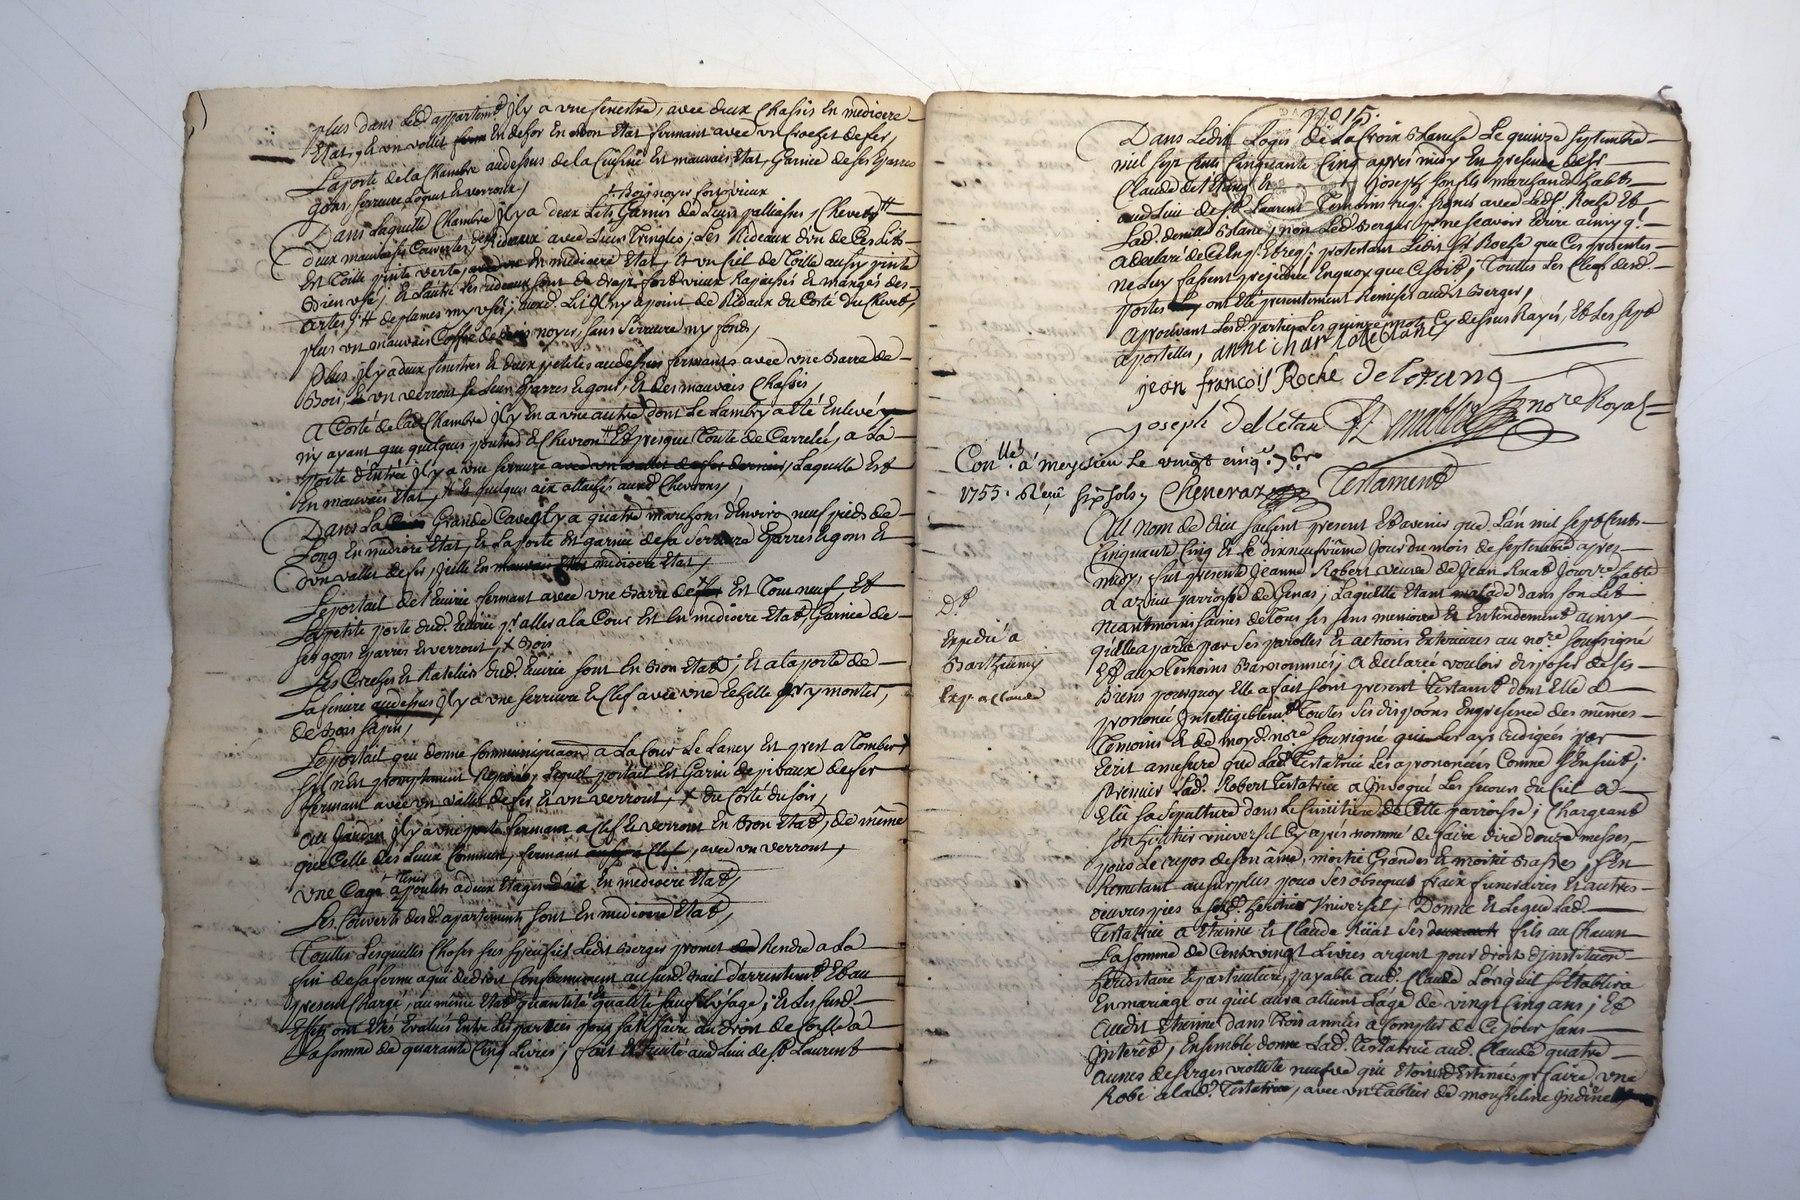 plus dans led appartemt Il y a une fenestre, avec deux chassis En mediocre
Etat, et un vollet En de for En bon Etat fermant avec un crochet de fer,
La porte de la chambre audessus de la Cuisine Est mauvais Etat, Garnie de ses Eparres
gons, serrure Loquet Et verroux,
+ Bois noyer fort vieux
Dans Laquelle Chambre Il y a deux Lits Garnis de Leurs palliasses, Chevets
deux mauvaises Couvertes, Rideaux avec Leurs Tringles; Les Rideaux d'un de Ces Lits
Est Toille peinte verte, En mediocre Etat, Et un Ciel de Toille aussy peinte
Bien usé; Et L'autre Les rideaux sont de drap fort vieux Rapiessés Et mangés des
artes, de plumes my usés; aud. Lit Il ny a point de Rideaux du Corté du Chevet,
plus un mauvais Coffre de noyer, sans serrure ny fonds,
Plus Il y a deux fenestres Et deux petites audessus fermants avec une Barre de
Bois, Et un verroux Et Leurs Eparres Et gons, Et des mauvais Chassis,
A Corté de lad. Chambre Il y En a une autre dont Le Lambry a été Enlevé,
n'y ayant que quelques poutres Et Chevrons Et presque Toute de Carrelée, a La
porte d'Entrée Il y a une serrure avec un vallet de fer dernier, Laquelle Est
En mauvais Etat, Et quelques aix attachés aux d. Chevrons,
Dans La Grande Cave Il y a quatre marcs d'Environ neuf pieds de
Long En mediocre Etat, Et La porte Est garnie de sa Serrure Eparres Et gons Et
d'un vallet de fer, En mauvais Etat mediocre Etat,
Le portail de L'Ecurie fermant avec une Barre de Est Tout neuf Et
La petite porte dud. Ecurie pr. aller a la Cour Est En mediocre Etat, Garnie de
ses gons Eparres Et verroux, + Bois
Les Creches Et Rateliers dud. Ecurie sont En Bon Etat; Et a la porte de
La feniere audessus Il y a une serrure Et Clef avec une Echelle pr. y monter,
de Bois sapin,
Le portail qui donne Communiquaon a La Cour Le Lancy Est prest a Tomber,
s'Il n'Est promptement Reparé, Lequel portail Est Garni de pivaux de fer
fermant avec un vallet de fer, Et un verrout, + du Corté du soir,
Au Jardin Il y a une porte fermant a Clef Et verroux En Bon Etat, de même
que Celle des Lieux Commun, fermant aussy a Clef, avec un verroux,
une Cage a Tenir poulets a deux Etages d'aix En mediocre Etat,
Les Couverts desd. apartements sont En mediocre Etat,
Touttes Lesquelles Choses sus specifiés Ledit Berger promet Rendre a La
fin de sa ferme a qui de droit Conformement au susd. Bail d'arrentement Et au
present Chargé, au même Etat quantité Et qualité sauf L'usage; Et Les susd.
Effets ont Etés Evalués Entre Les parties pour satisfaire au droit de scelle a
La somme de quarante Cinq Livres; fait Et recité aud. Lieu de St Laurent
No 15.
Dans Ledit Logis de La Croix Blanche Le quinze septembre
mil sept Cens Cinquante Cinq apres midy En presence de sr
Claude de L'Etang Et Joseph son fils marchands habts
aud Lieu de St Laurent Temoins req. signés avec Led. sr Roche Et
Lad. demlle Blanc, non Led. Berger pr ne sçavoir Ecrire ainsy qu'
a declaré de Ce Enq. Et req.; protestant Ledit sr Roche que Ces presentes
ne Luy fassent prejudice En quoy que Ce soit; Touttes Les Clefs desd.
portes ont Eté presentement Remises audit Berger,
Aprouvant Lesd. parties Les quinze mots Cy dessus Rayés, Et Les sept
apostilles, anne charlote Blanc
jean françois Roche Deletang
joseph deletan Demablod nore Royal
Conllé. a meyzieu Le vingt cinq. 7bre
1755. Reçu six sols, Cheneraz
Testament
Au nom de dieu soit present Et avenir que L'an mil sept Cents
Cinquante Cinq Et Le dixneufvième Jour du mois de septembre apres
midy, fut presente Jeanne Robert veuve de Jean Ruat Jourr. habte
a azieu parroisse de Genas, Laquelle Etant malade dans son Lit
Neantmoins saine de Tous ses sens memoire Et Entendement ainsy
qu'Elle a parue par ses parolles Et actions Exterieures au nore soussigné
Et aux Temoins Bas nommés; a declarée vouloir disposer de ses
Biens pourquoy Elle a fait son present Testamt dont Elle a
prononcé Intelligiblemt Toutes ses dispoons En presence des mêmes
Temoins Et de moyd. nore soussigné qui Les ay redigées par
Ecrit a mesure que Lad. Testatrice Les a prononcées Comme s'Ensuit;
Premier Lad. Robert Testatrice a Invoqué Les secours du Ciel a
Elû sa sepulture dans Le Cimitiere de Cette parroisse, Chargeant
son heritier universel Cy apres nommé de faire dire douze messes,
pour Le repos de son âme, moitié Grandes Et moitié Basses, s'En
Remetant au surplus pour ses obseques fraix funeraires Et autres
oeuvres pies a sond. heritier Universel; Donne Et Legue Lad.
Testatrice a Etienne Et Claude Ruat ses fils au Chacun
La somme de Cent vingt Livres argent pour droit d'Institution
hereditaire Et particuliere, payable aud. Claude Lorsqu'il s'Etablira
En mariage ou qu'il aura attaint L'âge de vingt Cinq ans; Et
audit Etienne dans Trois années a Compter de Ce jour sans
Interêt; Ensemble donne Lad. Testatrice aud. Claude quatre
aunes de serges viollette neufve qui Etoient destinées pr faire une
Robe a lad. Testatrice, avec un Tablier de mousseline Indienne
Dt
Expedié a
Barthelemy
Exp. a Claude